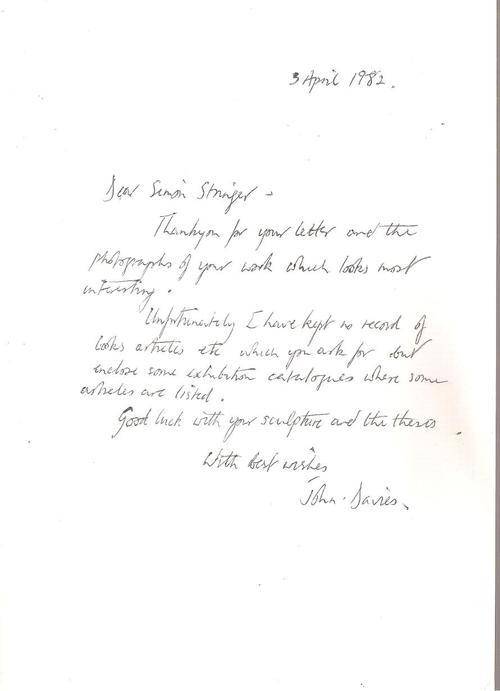 3 April 1982.
Dear Simon Stringer -
Thankyou for your letter and the
photographs of your work which looks most
interesting.
Unfortunately I have kept no record of
books articles etc which you ask for but
enclose some exhibition catalogues where some
articles are listed.
Good luck with your sculpture and the thesis.
With best wishes
John Davies.